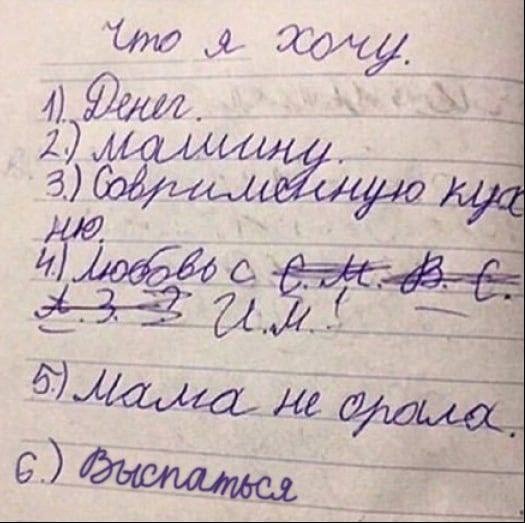 Что я хочу.
1). Денег.
2.) машину.
3.) Современную кух
ню.
4.) любовь с С. М. В. С.
А. З. Э И.М.!
5.) Мама не орала.
6.) Выспаться